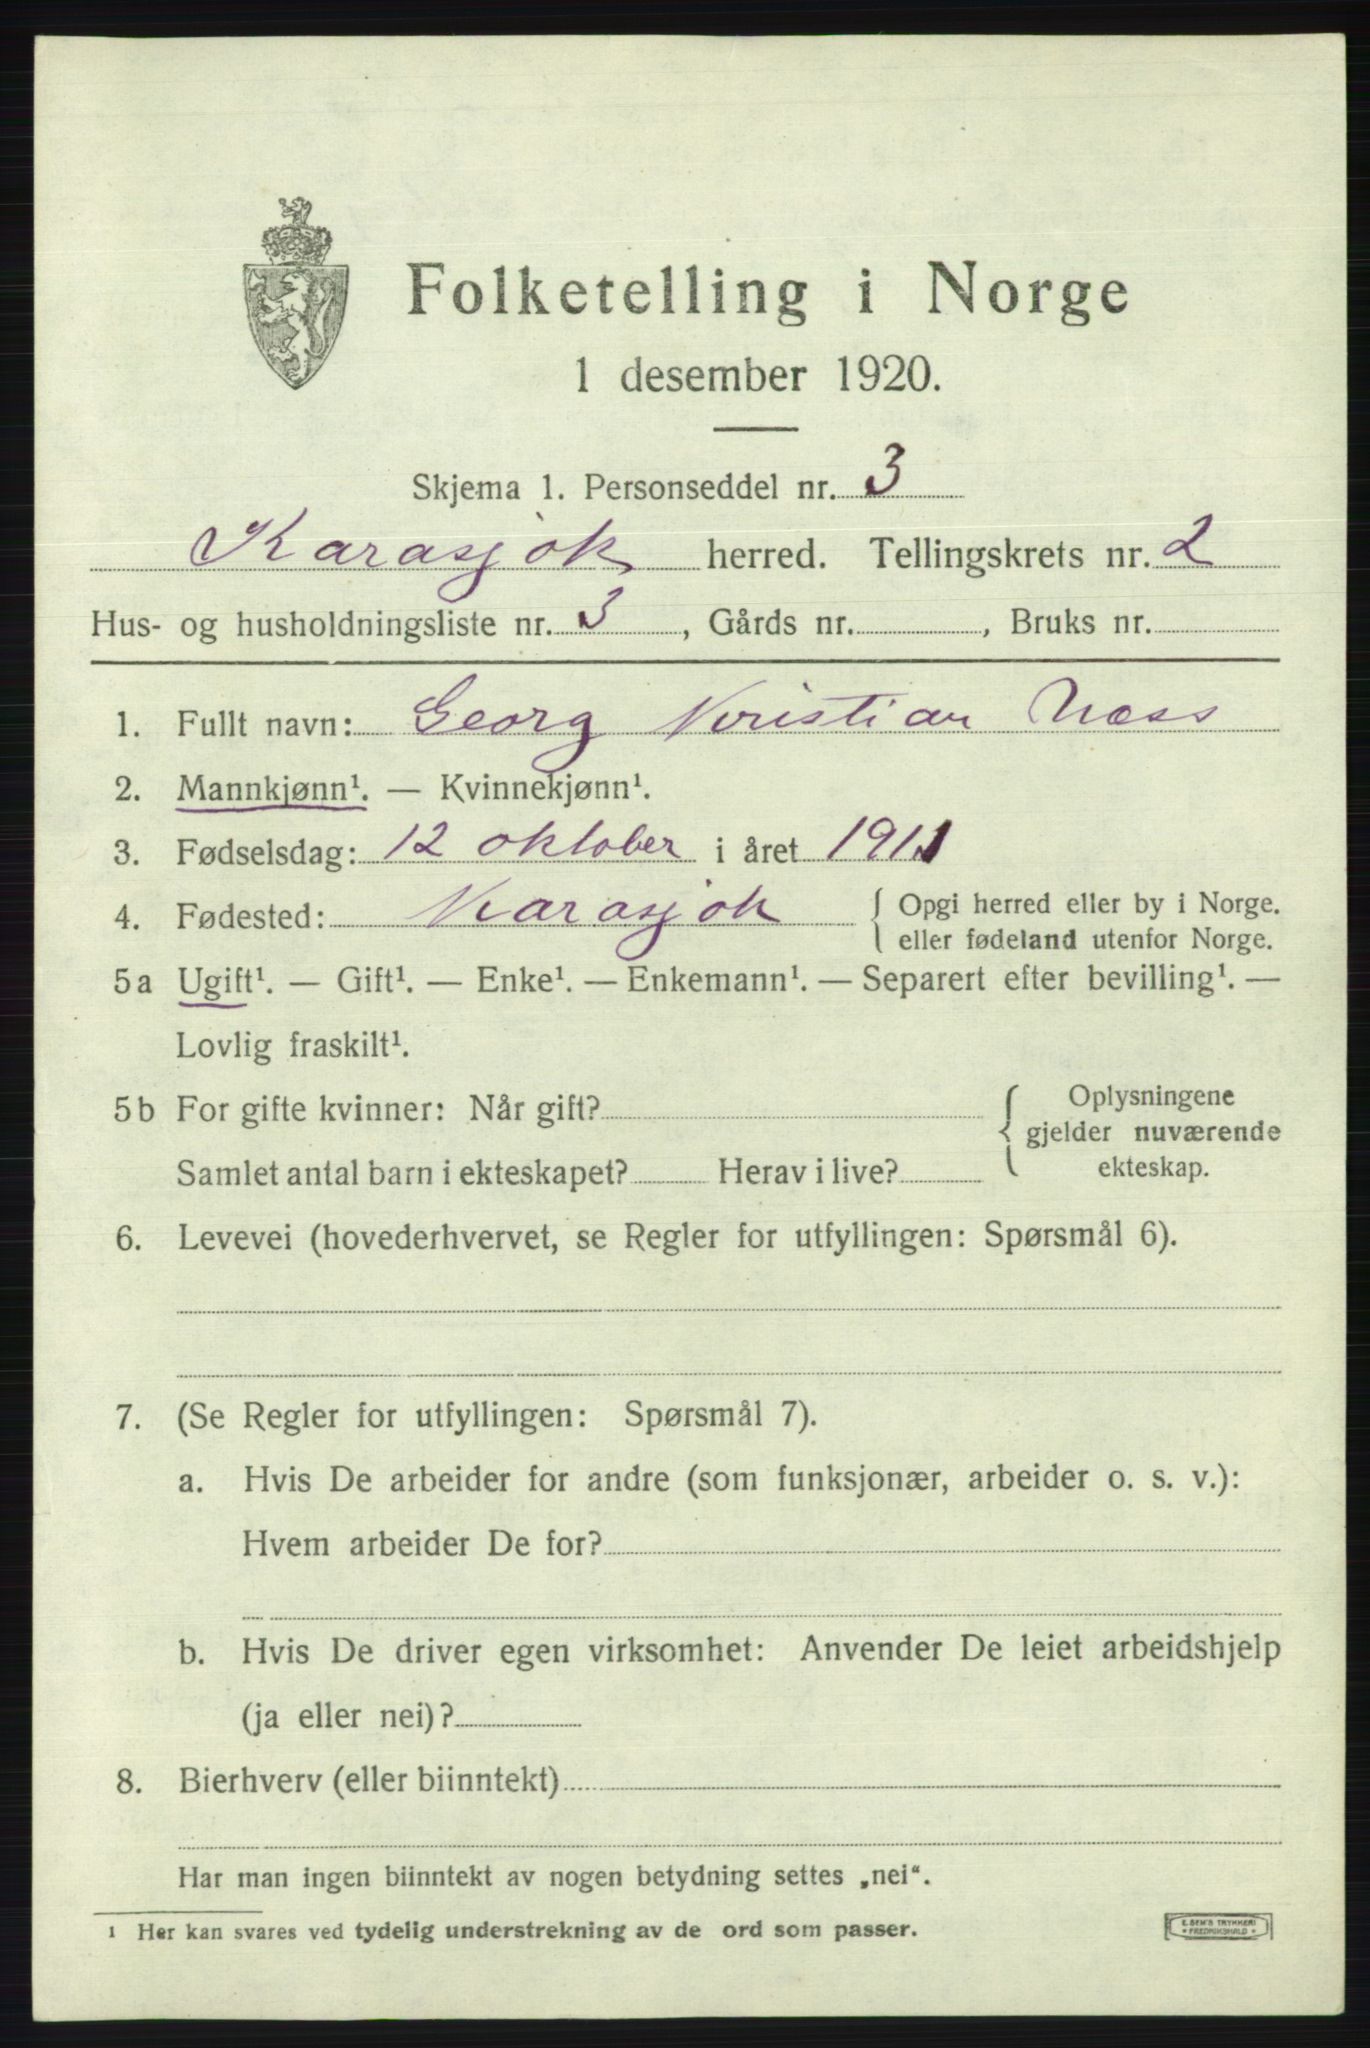 Folketelling i Norge
1 desember 1920.
Skjema 1. Personseddel nr. 3
Karasjok herred. Tellingskrets nr. 2
Hus- og husholdningsliste nr. 3, Gårds nr. , Bruks nr.
1. Fullt navn: Georg Kristian Næss
2. Mannkjønn¹. — Kvinnekjønn¹.
3. Fødselsdag: 12 oktober i året 1911
4. Fødested: Karasjok { Opgi herred eller by i Norge.
eller fødeland utenfor Norge.
5a Ugift¹. — Gift¹. — Enke¹. — Enkemann¹. — Separert efter bevilling¹. —
Lovlig fraskilt¹.
5b For gifte kvinner: Når gift? { Oplysningene
gjelder nuværende
Samlet antal barn i ekteskapet? Herav i live? ekteskap.
6. Levevei (hovederhvervet, se Regler for utfyllingen: Spørsmål 6).
7. (Se Regler for utfyllingen: Spørsmål 7).
a. Hvis De arbeider for andre (som funksjonær, arbeider o. s. v.):
Hvem arbeider De for?
b. Hvis De driver egen virksomhet: Anvender De leiet arbeidshjelp
(ja eller nei)?
8. Bierhverv (eller biinntekt)
Har man ingen biinntekt av nogen betydning settes „nei“.
¹ Her kan svares ved tydelig understrekning av de ord som passer.
E. SEM'S TRYKKERI
• FREDRIKSHALD •